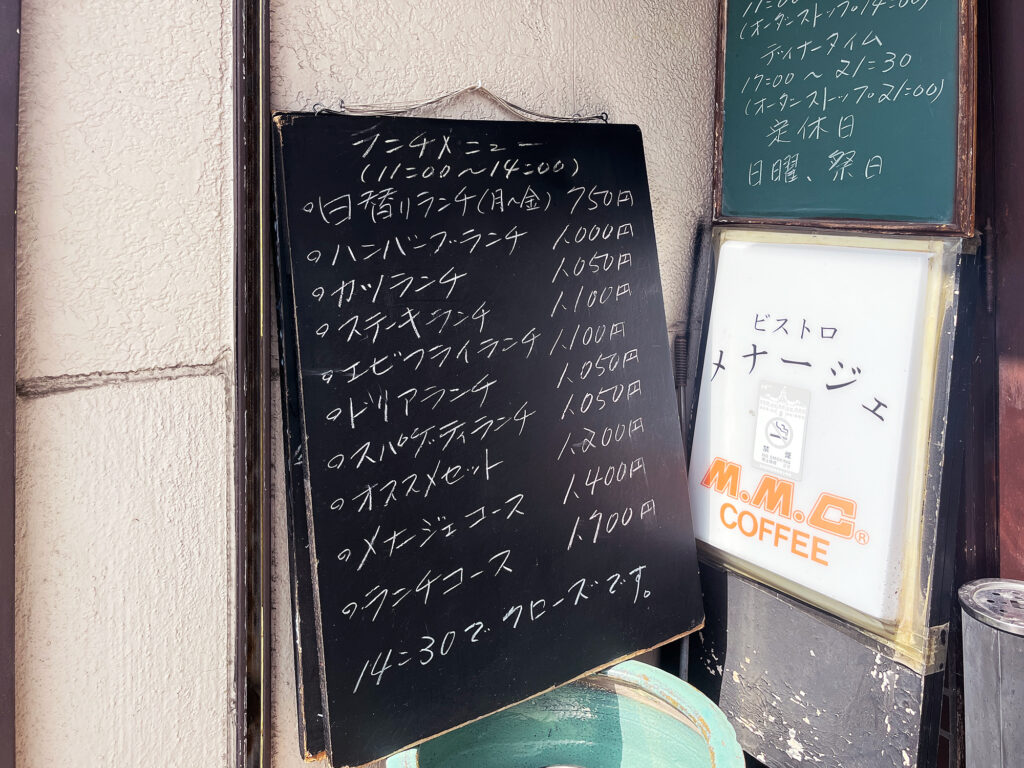 ランチメニュー
(11:00〜14:00)
日替りランチ(月〜金) 750円
ハンバーグランチ 1,000円
カツランチ 1,050円
ステーキランチ 1,100円
エビフライランチ 1,100円
ドリアランチ 1,050円
スパゲティランチ 1,050円
オススメセット 1,200円
メナージェコース 1,400円
ランチコース 1,700円
14:30でクローズです。
(オーダーストップ14:00)
ディナータイム
17:00〜21:30
(オーダーストップ21:00)
定休日
日曜、祭日
ビストロ
メナージェ
禁煙
M.M.C®
COFFEE